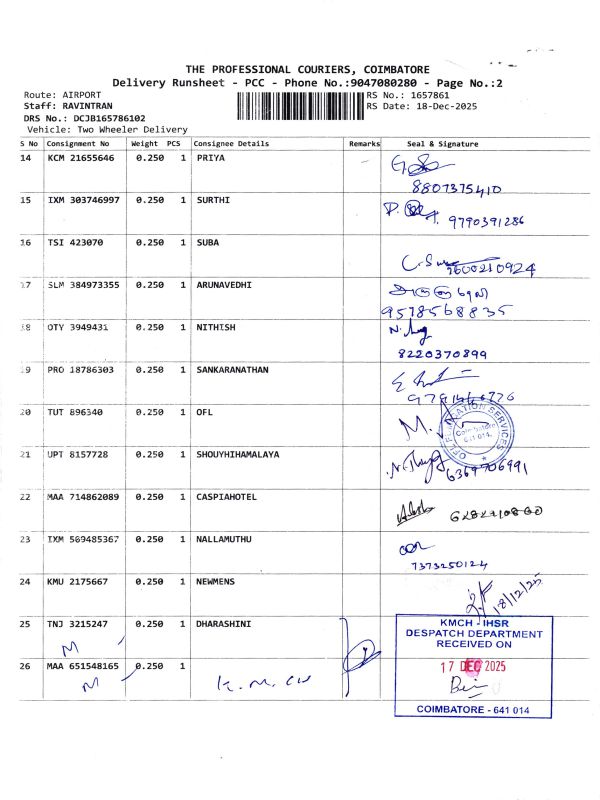 THE PROFESSIONAL COURIERS, COIMBATORE
Delivery Runsheet - PCC - Phone No.:9047080280 - Page No.:2
Route: AIRPORT
RS No.: 1657861
Staff: RAVINTRAN
RS Date: 18-Dec-2025
DRS No.: DCJB165786102
Vehicle: Two Wheeler Delivery
S No Consignment No Weight PCS Consignee Details Remarks Seal & Signature
14 KCM 21655646 0.250 1 PRIYA
8807375410
15 IXM 303746997 0.250 1 SURTHI
9790391286
16 TSI 423070 0.250 1 SUBA
9600210924
17 SLM 384973355 0.250 1 ARUNAVEDHI
9578568835
18 OTY 3949431 0.250 1 NITHISH
8220370899
19 PRO 18786303 0.250 1 SANKARANATHAN
20 TUT 896340 0.250 1 OFL
Coimbatore
641 014.
21 UPT 8157728 0.250 1 SHOUYHIHAMALAYA
6369706991
22 MAA 714862089 0.250 1 CASPIAHOTEL
23 IXM 569485367 0.250 1 NALLAMUTHU
7373250124
24 KMU 2175667 0.250 1 NEWMENS
18/12/25
25 TNJ 3215247 0.250 1 DHARASHINI
M
KMCH - IHSR
DESPATCH DEPARTMENT
RECEIVED ON
17 DEC 2025
COIMBATORE - 641 014
26 MAA 651548165 0.250 1
M
K. M. CH